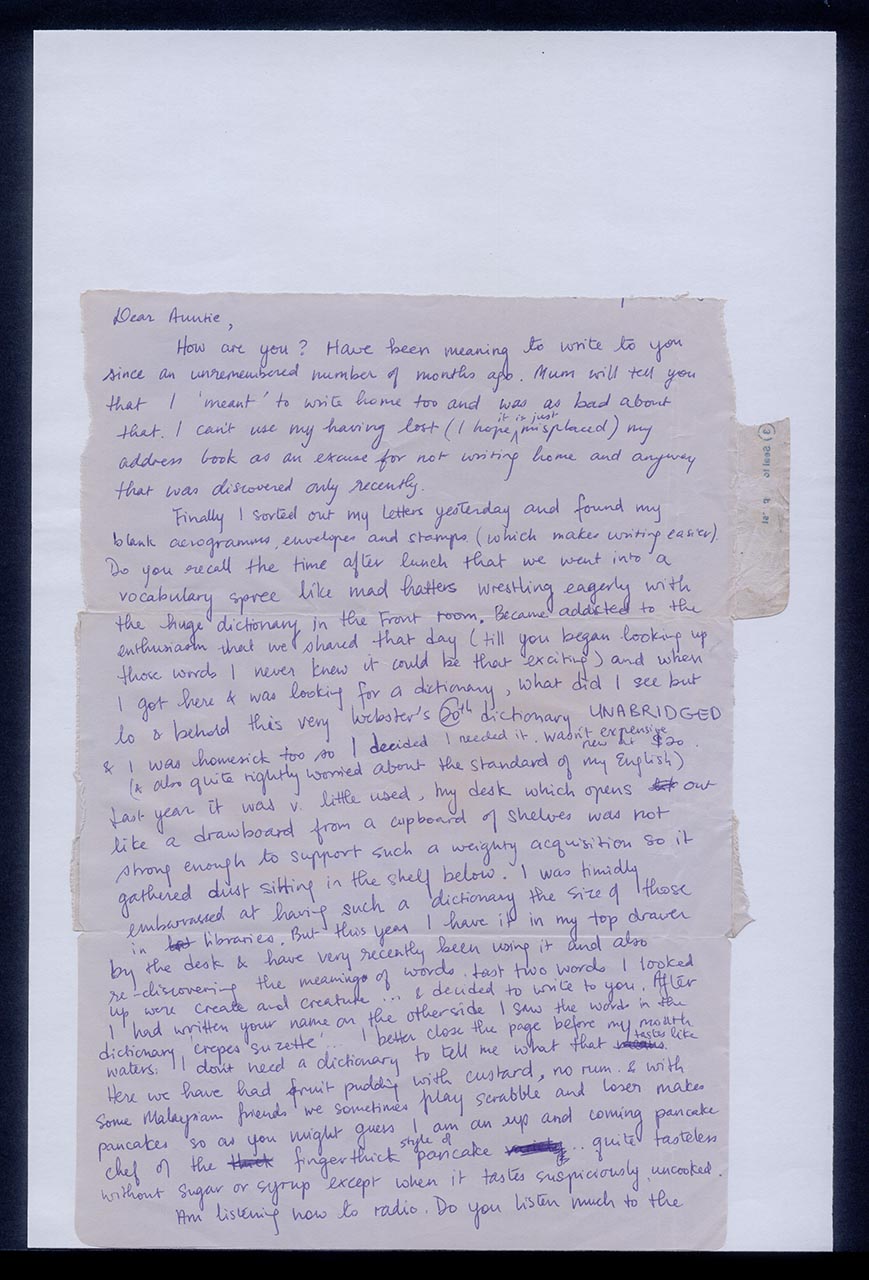 Dear Auntie,
How are you? Have been meaning to write to you
since an unremembered number of months ago. Mum will tell you
that I 'meant' to write home too and was as bad about
that. I can't use my having lost (I hope it is just misplaced) my
address book as an excuse for not writing home and anyway
that was discovered only recently.
Finally I sorted out my letters yesterday and found my
blank aerogramms, envelopes and stamps (which makes writing easier).
Do you recall the time after lunch that we went into a
vocabulary spree like mad hatters wrestling eagerly with
the huge dictionary in the Front room. Became addicted to the
enthusiasm that we shared that day (till you began looking up
those words I never knew it could be that exciting) and when
I got here & was looking for a dictionary, what did I see but
lo & behold this very Webster's 20th dictionary UNABRIDGED
& I was homesick too so I decided I needed it. Wasn't expensive
new at $20.
(& also quite rightly worried about the standard of my English)
Last year it was v. little used, my desk which opens out
like a drawboard from a cupboard of shelves was not
strong enough to support such a weighty acquisition so it
gathered dust sitting in the shelf below. I was timidly
embarrassed at having such a dictionary the size of those
in libraries. But this year I have it in my top drawer
by the desk & have very recently been using it and also
re-discovering the meanings of words. Last two words I looked
up were create and creature ... & decided to write to you. After
I had written your name on the otherside I saw the words in the
dictionary 'crepes suzette'... I better close the page before my mouth
waters. I dont need a dictionary to tell me what that tastes like
Here we have had fruit pudding with custard, no rum. & with
some Malaysian friends we sometimes play scrabble and loser makes
pancakes so as you might guess I am an up and coming pancake
chef of the finger thick style of pancake ... quite tasteless
without sugar or syrup except when it tastes suspiciously uncooked.
Am listening now to radio. Do you listen much to the